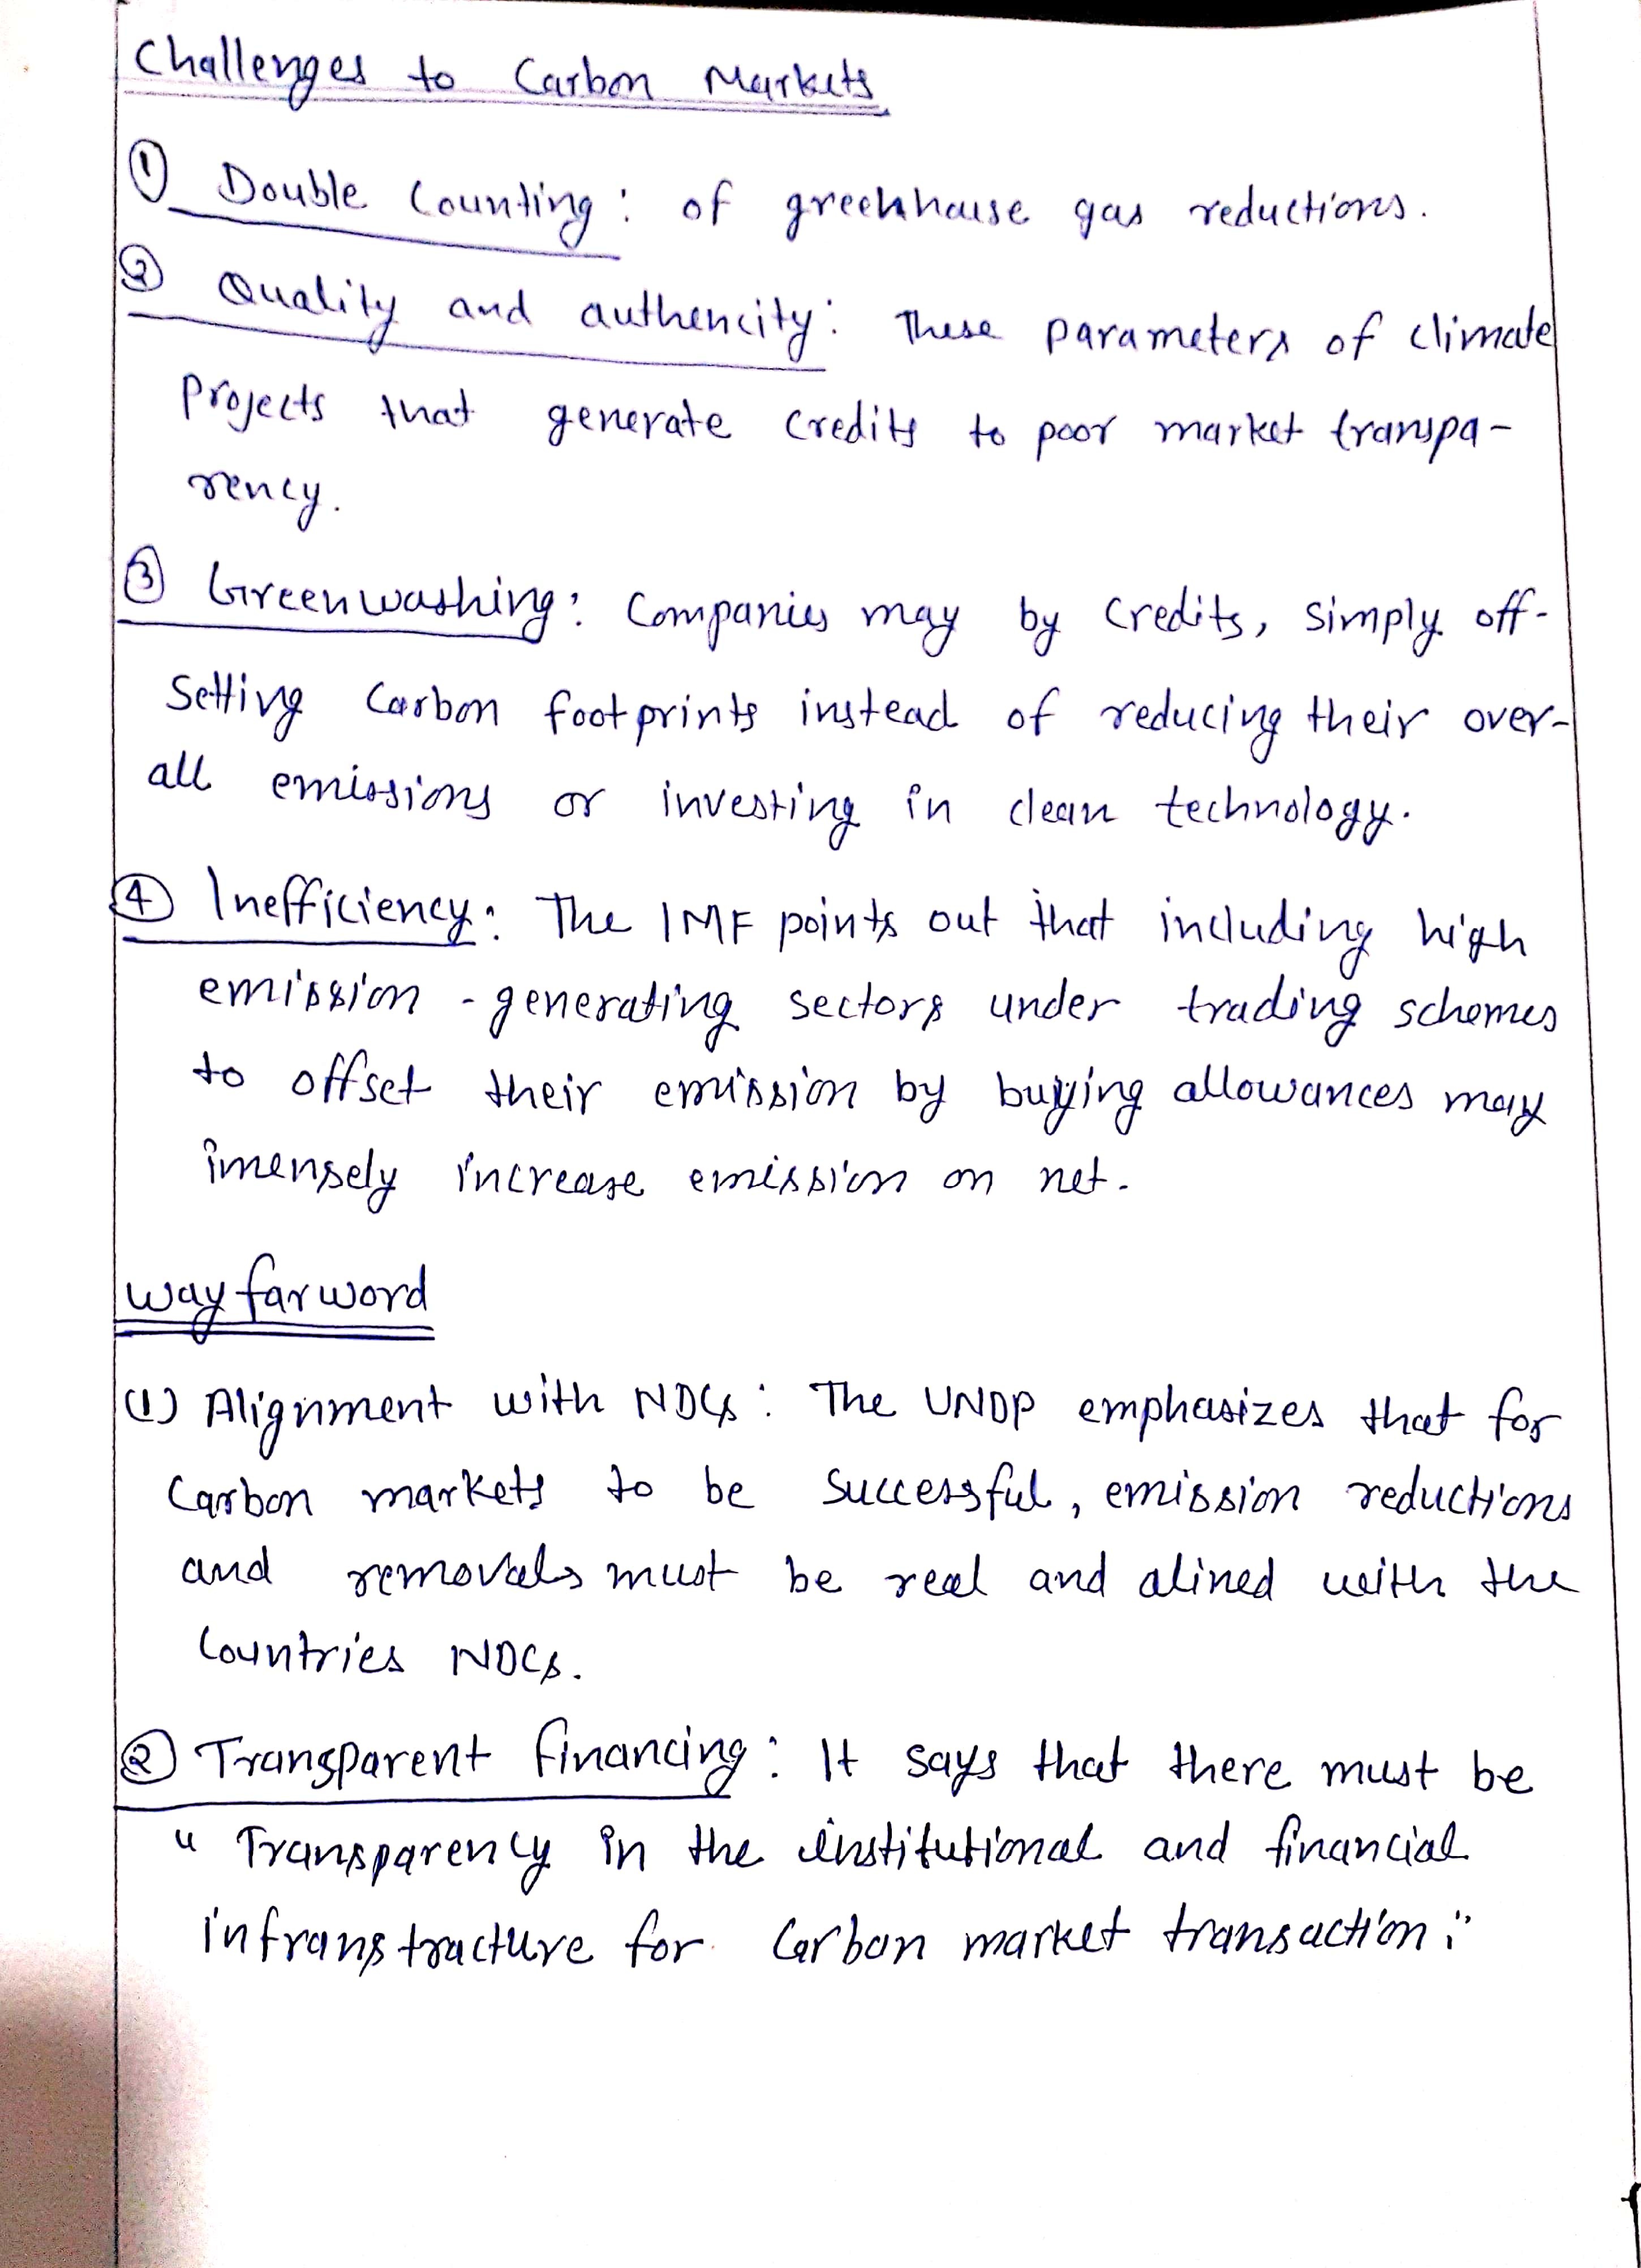 Challenges to Carbon Markets
① Double Counting: of greenhouse gas reductions.
② Quality and authencity: These parameters of climate
projects that generate credits to poor market transpa-
rency.
③ Greenwashing: Companies may by credits, simply off-
setting carbon footprints instead of reducing their over-
all emissions or investing in clean technology.
④ Inefficiency: The IMF points out that including high
emission - generating sectors under trading schemes
to offset their emission by buying allowances may
imensely increase emission on net.
way farword
(1) Alignment with NDCs: The UNDP emphasizes that for
Carbon markets to be successful, emission reductions
and removals must be real and alined with the
Countries NDCs.
② Transparent financing: It says that there must be
"Transparency in the institutional and financial
infranstracture for Carbon market transaction."